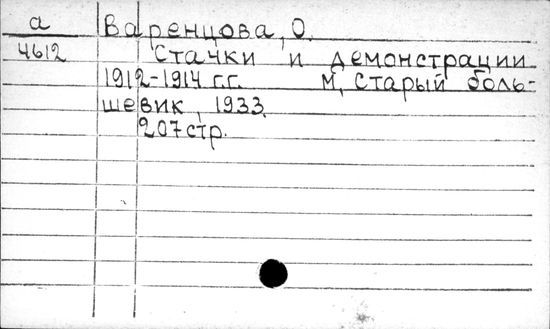 а Варенцова, О.
4612 Стачки и демонстрации
1912-1914 г.г. М, Старый боль-
шевик, 1933.
207 стр.